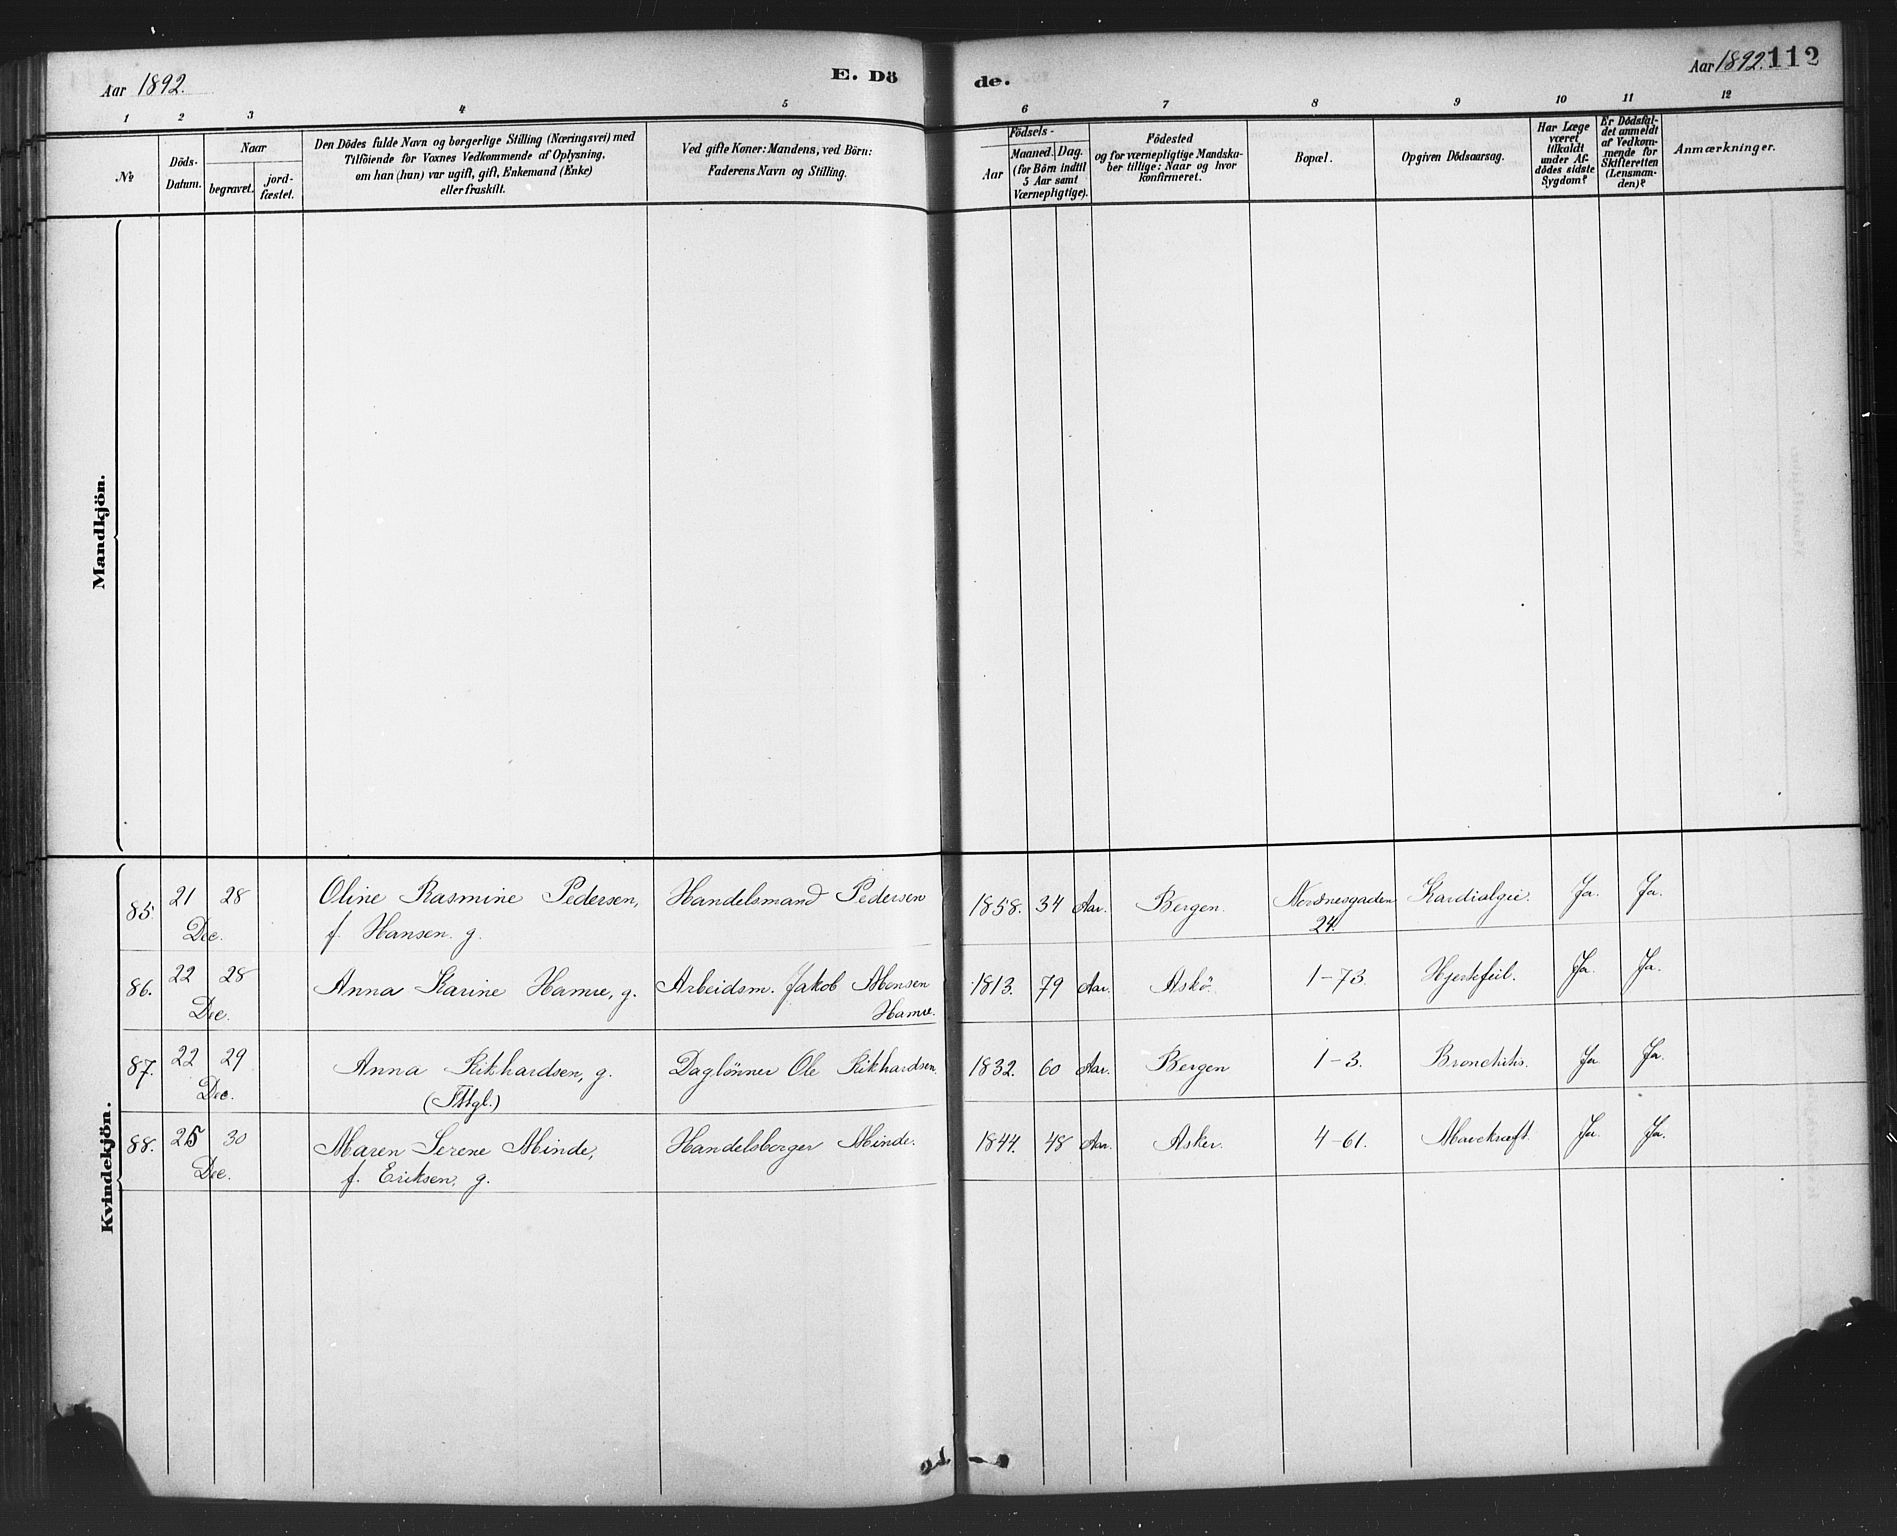 Aar 1892.
E. Dö
de.
Aar 1892. 112
1 2 3 4 5 6 7 8 9 10 11 12
№
Döds-
Datum.
Naar
begravet.
jord-
fæstet.
Den Dödes fulde Navn og borgerlige Stilling (Næringsvei) med
Tilföiende for Voxnes Vedkommende af Oplysning,
om han (hun) var ugift, gift, Enkemand (Enke)
eller fraskilt.
Ved gifte Koner: Mandens, ved Börn:
Faderens Navn og Stilling.
Födsels-
Aar
Maaned. Dag.
(for Börn indtil
5 Aar samt
Værnepligtige).
Födested
og for værnepligtige Mandska-
ber tillige: Naar og hvor
konfirmeret.
Bopæl.
Opgiven Dödsaarsag.
Har Læge
været
tilkaldt
under Af-
dödes sidste
Sygdom?
Er Dödsfal-
det anmeldt
af Vedkom-
mende for
Skifteretten
(Lensman-
den)?
Anmærkninger.
Mandkjön.
Kvindekjön.
85. 21 28 Oline Rasmine Pedersen, Handelsmand Pedersen 1858. 34 Aar. Bergen. Nordnesgaden Kardialgie Ja. Ja.
Dec. f. Hansen. g. 24.
86. 22 28 Anna Karine Hamre, g. Arbeidsm. Jakob Monsen 1813. 79 Aar. Askö. 1-73. Hjertefeil. Ja. Ja.
Dec. Hamre.
87. 22 29 Anna Rikhardsen, g. Daglönner Ole Rikhardsen. 1832. 60 Aar. Bergen 1-3. Bronchitis. Ja Ja.
Dec.
88. 25 30 Maren Serene Minde, Handelsborger Minde. 1844. 48 Aar. Asker. 4-61. Ja. Ja.
Dec. f. Eriksen. g.